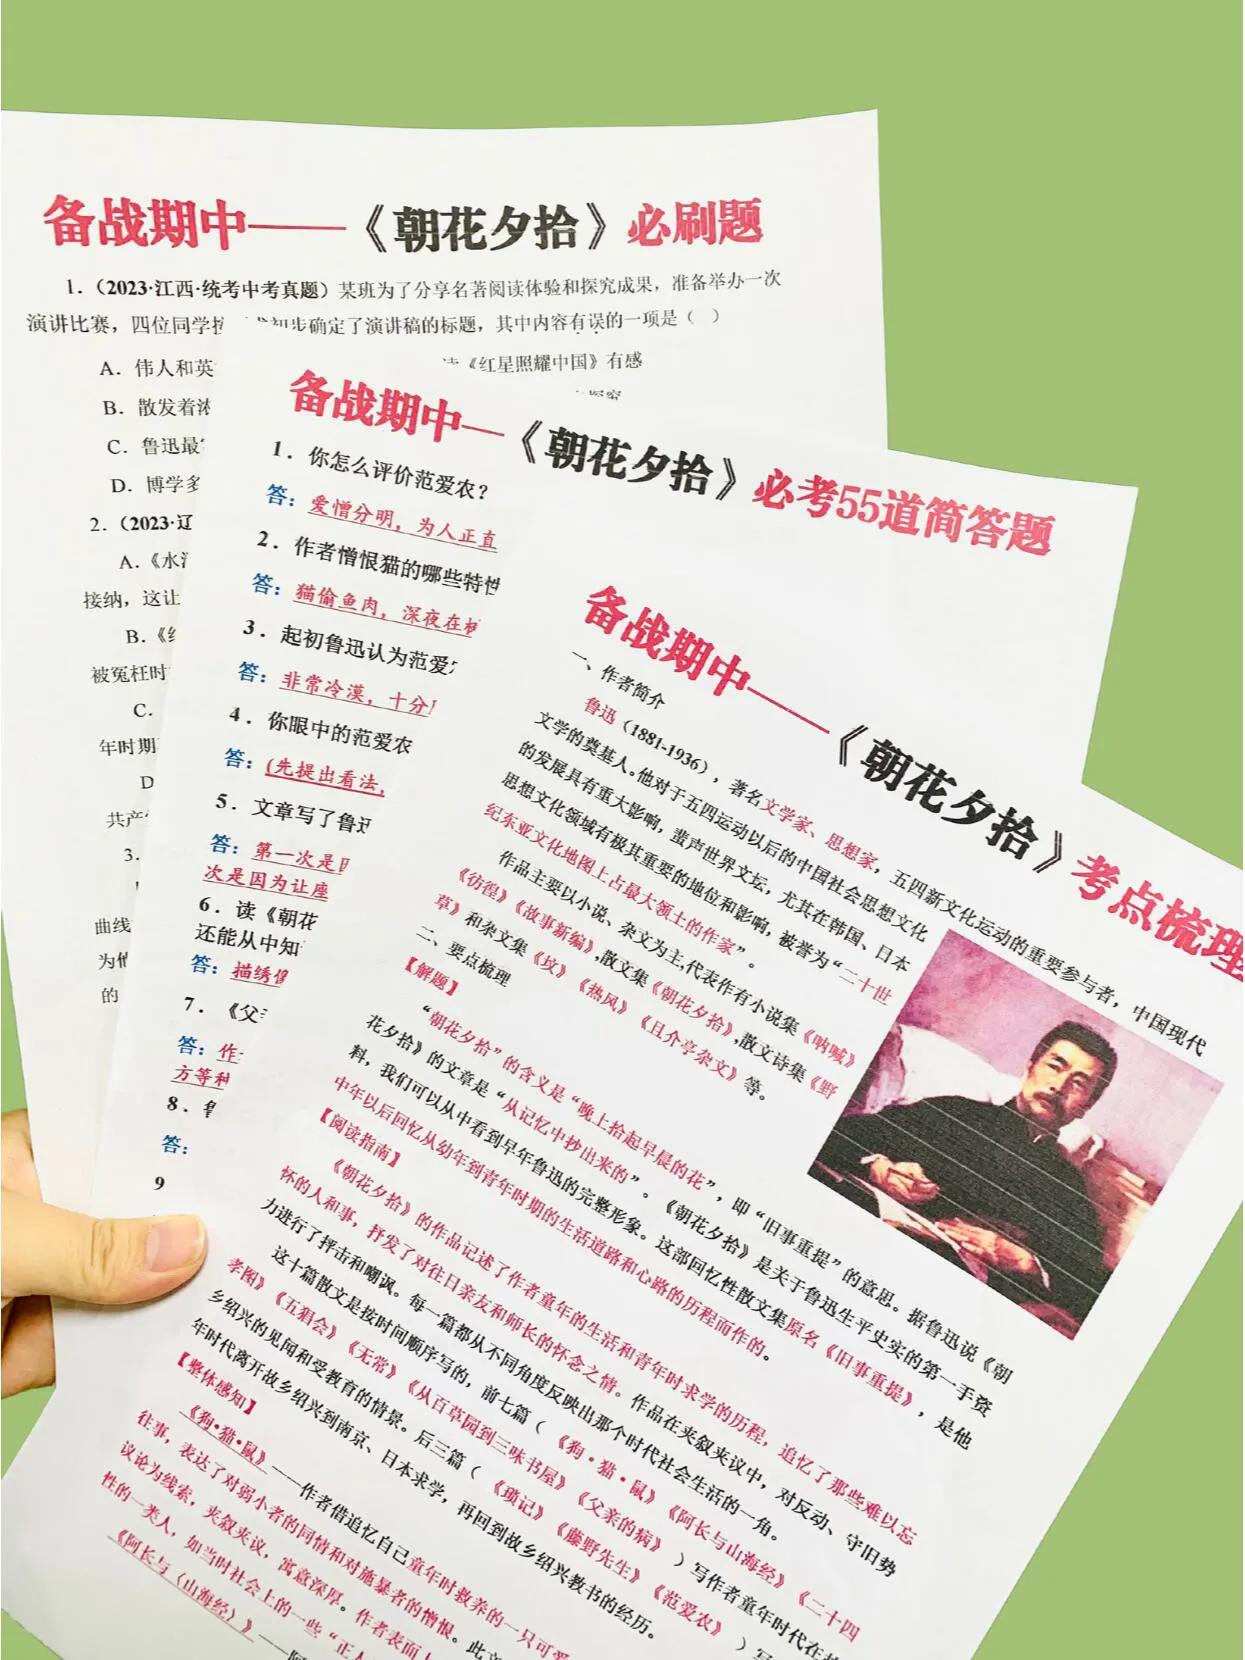 备战期中——《朝花夕拾》必刷题
1.（2023·江西·统考中考真题）某班为了分享名著阅读体验和探究成果，准备举办一次
演讲比赛，四位同学 初步确定了演讲稿的标题，其中内容有误的一项是（ ）
A．伟人和英 《红星照耀中国》有感
B．散发着浓
C．鲁迅最
D．博学多
2.（2023·辽
A．《水浒
接纳，这让
B．《红
被冤枉时
C．
年时期
D
共产
3.
曲线
为他
的
备战期中—《朝花夕拾》必考55道简答题
1．你怎么评价范爱农？
答：爱憎分明，为人正直
2．作者憎恨猫的哪些特性
答：猫偷鱼肉，深夜在
3．起初鲁迅认为范爱
答：非常冷漠，十分
4．你眼中的范爱农
答：(先提出看法，
5．文章写了鲁迅
答：第一次是因
次是因为让座
6．读《朝花
还能从中知
答：描绣像
7．《父
答：作
方等种
8．鲁
答：
9
备战期中——《朝花夕拾》考点梳理
一、作者简介
鲁迅（1881-1936），著名文学家、思想家，五四新文化运动的重要参与者，中国现代
文学的奠基人。他对于五四运动以后的中国社会思想文化
的发展具有重大影响，蜚声世界文坛，尤其在韩国、日本
思想文化领域有极其重要的地位和影响，被誉为“二十世
纪东亚文化地图上占最大领土的作家”。
作品主要以小说、杂文为主，代表作有小说集《呐喊》
《彷徨》《故事新编》，散文集《朝花夕拾》，散文诗集《野
草》和杂文集《坟》《热风》《且介亭杂文》等。
二、要点梳理
【解题】
“朝花夕拾”的含义是“晚上拾起早晨的花”，即“旧事重提”的意思。据鲁迅说《朝
花夕拾》的文章是“从记忆中抄出来的”。《朝花夕拾》是关于鲁迅生平史实的第一手资
料，我们可以从中看到早年鲁迅的完整形象。这部回忆性散文集原名《旧事重提》，是他
中年以后回忆从幼年到青年时期的生活道路和心路的历程而作的。
【阅读指南】
《朝花夕拾》的作品记述了作者童年的生活和青年时求学的历程，追忆了那些难以忘
怀的人和事，抒发了对往日亲友和师长的怀念之情。作品在夹叙夹议中，对反动、守旧势
力进行了抨击和嘲讽。每一篇都从不同角度反映出那个时代社会生活的一角。
这十篇散文是按时间顺序写的，前七篇（《狗·猫·鼠》《阿长与山海经》《二十四
孝图》《五猖会》《无常》《从百草园到三味书屋》《父亲的病》）写作者童年时代在故
乡绍兴的见闻和受教育的情景。后三篇（《琐记》《藤野先生》《范爱农》）写
年时代离开故乡绍兴到南京、日本求学，再回到故乡绍兴教书的经历。
【整体感知】
《狗·猫·鼠》——作者借追忆自己童年时救养的一只可爱
往事，表达了对弱小者的同情和对施暴者的憎恨。此文
议论为线索，夹叙夹议，寓意深厚。作者表面上
性的一类人，如当时社会上的一些“正人
《阿长与〈山海经〉》——阿